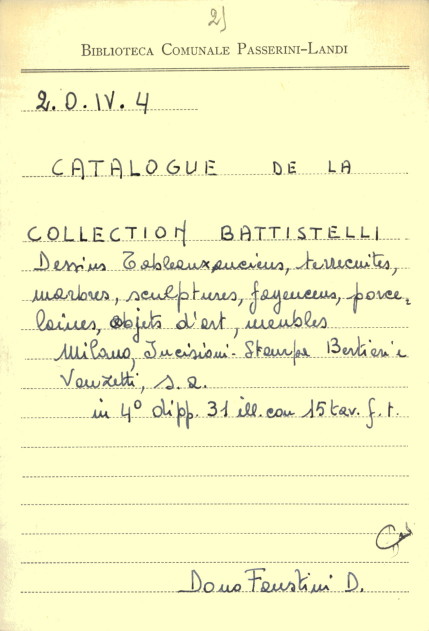 2)
BIBLIOTECA COMUNALE PASSERINI-LANDI
2.O.IV.4
CATALOGUE DE LA
COLLECTION BATTISTELLI
Dessins Tableaux anciens, terrecuites,
marbres, sculptures, fayenceus, porce,
laines, objets d'art, meubles
Milano, Incisioni-Stampe Bertieri e
Vanzetti, s.a.
in 4° di pp. 31 ill. con 15 tav. f.t.
Dono Faustini D.